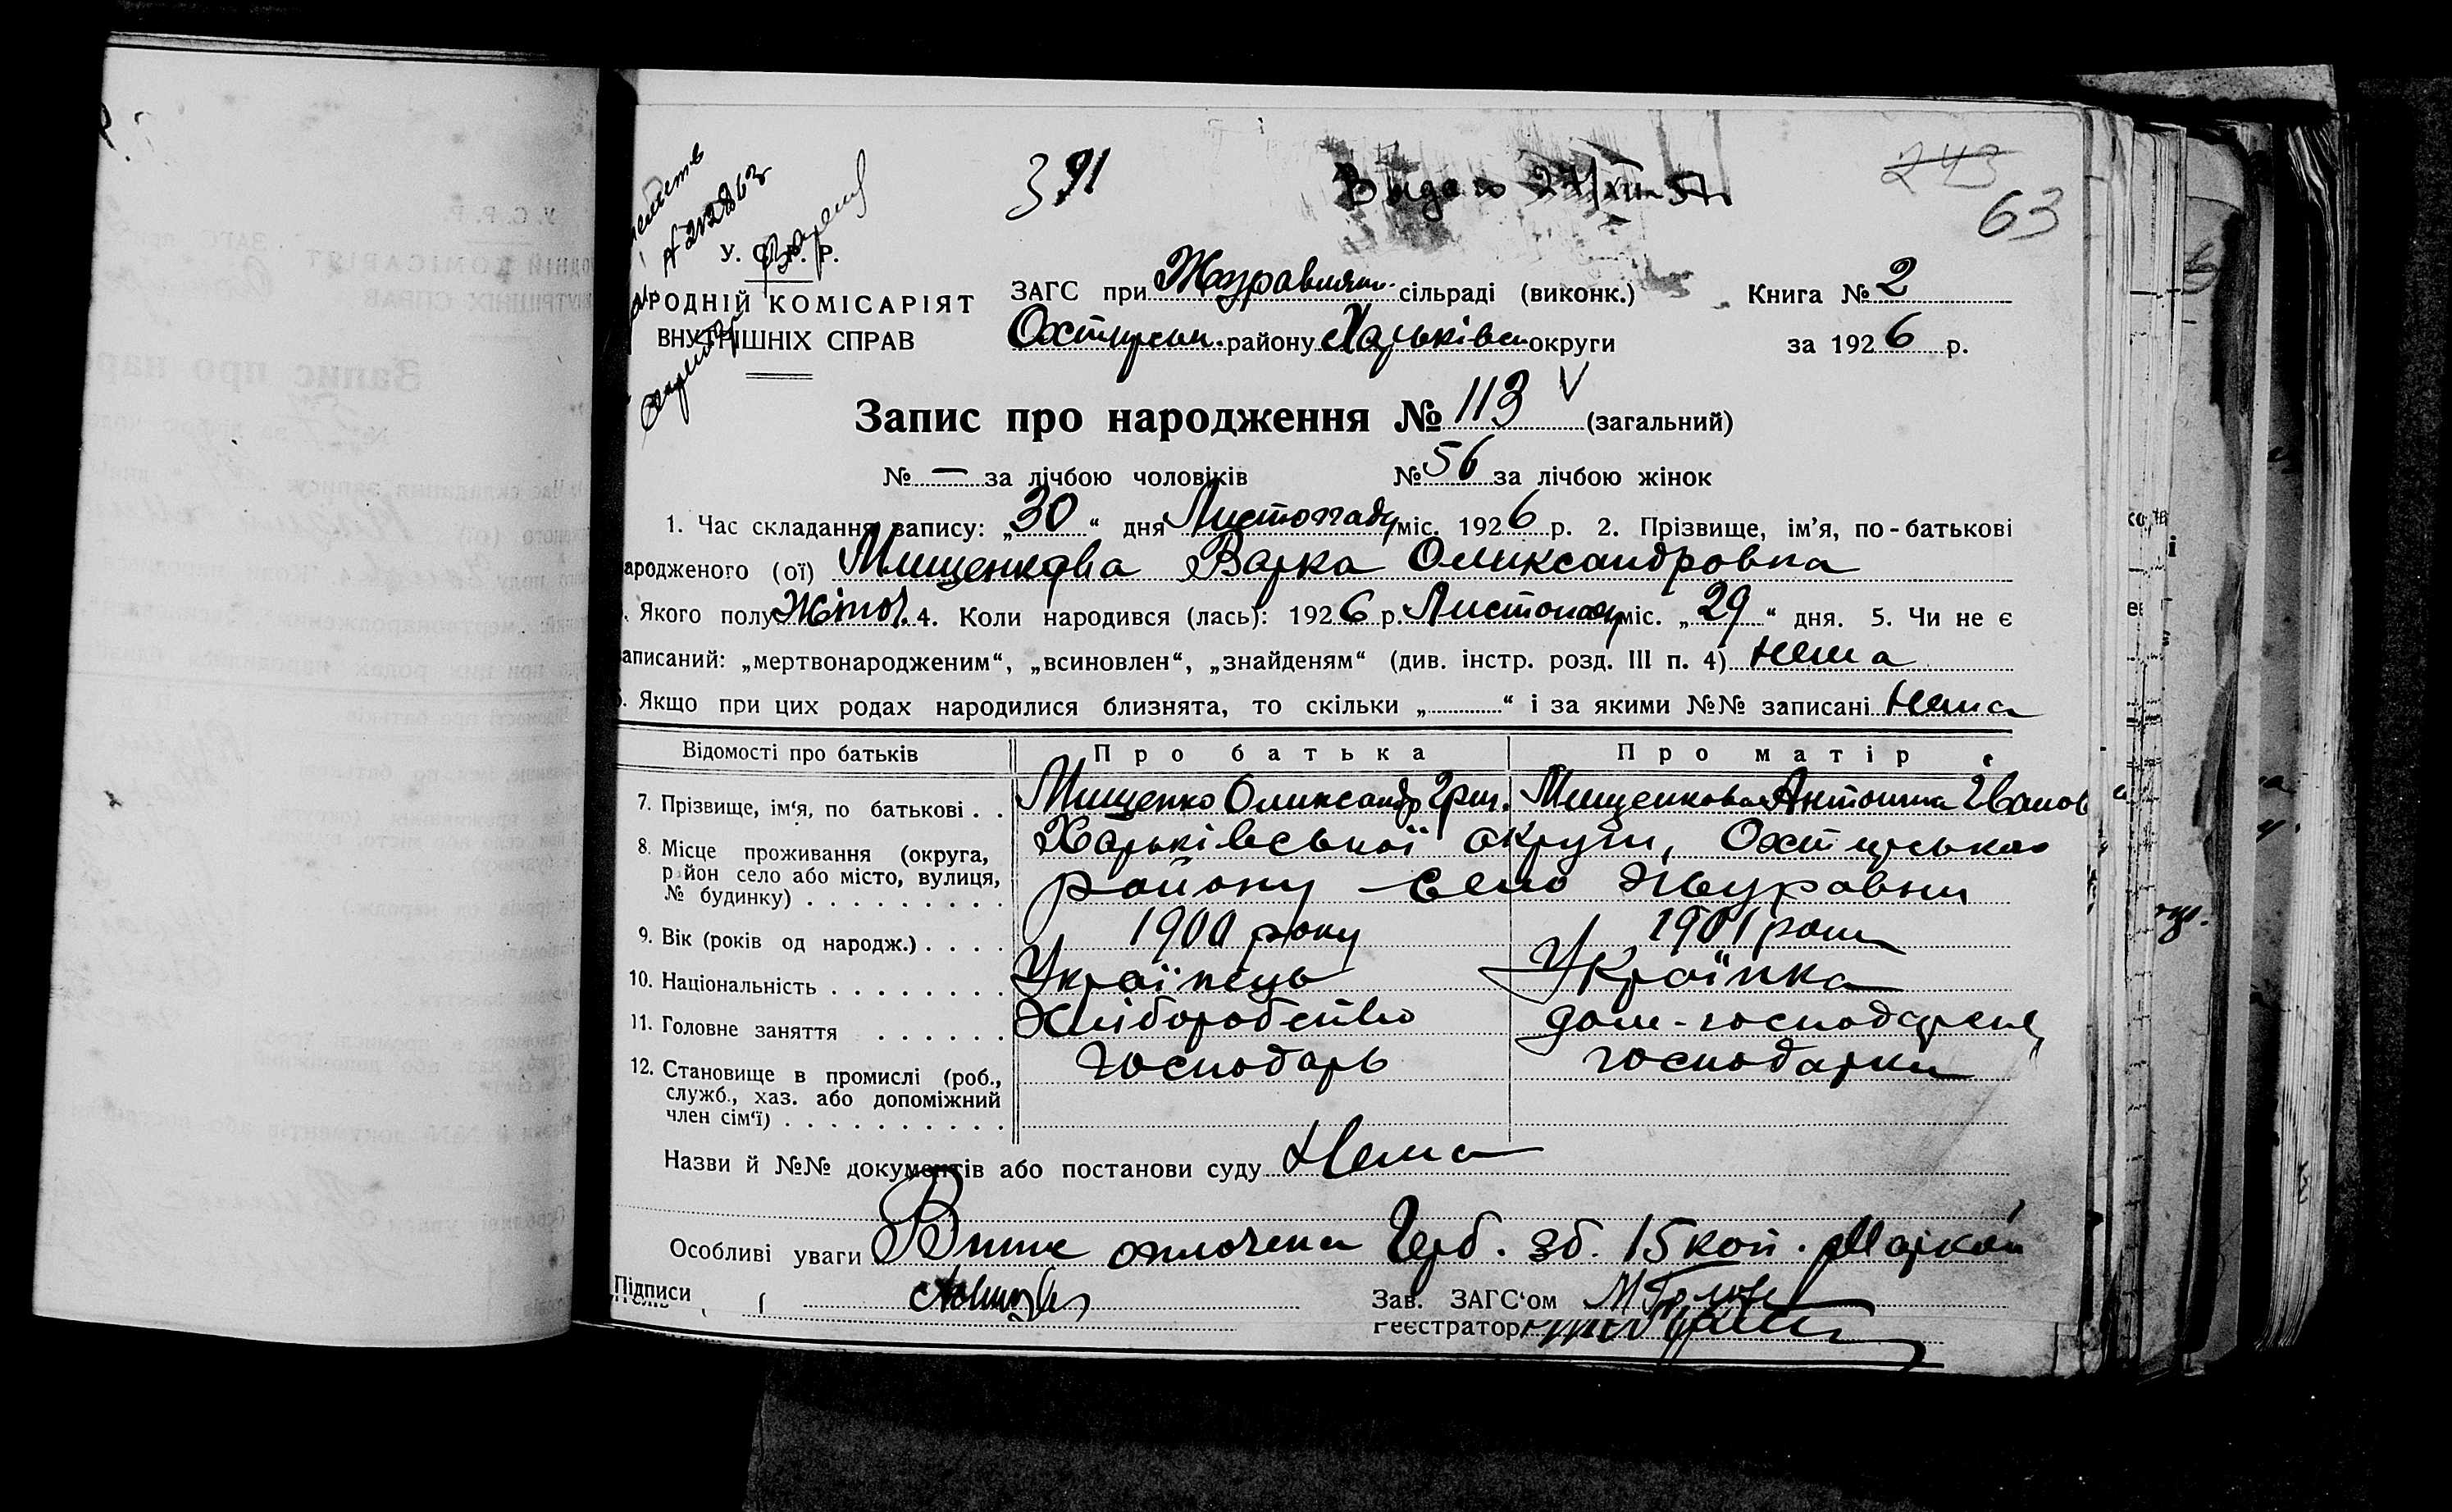 391
Видано 27/XII-57г
243
63
У. С. Р. Р.
РОДНІЙ КОМІСАРІЯТ
ВНУТРІШНІХ СПРАВ
ЗАГС при Журавлян. сільраді (виконк.)
Охтирськ. району Харьківськ округи
Книга № 2
за 1926 р.
Запис про народження № 113 V (загальний)
№ — за лічбою чоловіків № 56 за лічбою жінок
1. Час складання запису: „30“ дня Листопаду міс. 1926 р. 2. Прізвище, ім'я, по-батькові
ародженого (ої) Мищенкова Варка Олександровна
. Якого полу Жіноч. 4. Коли народився (лась): 1926 р. Листопаду міс. „29“ дня. 5. Чи не є
аписаний: „мертвонародженим“, „всиновлен“, „знайденям“ (див. інстр. розд. III п. 4) нема
6. Якщо при цих родах народилися близнята, то скільки „......“ і за якими №№ записані нема
Відомості про батьків Про батька Про матір
7. Прізвище, ім'я, по батькові . . Мищенко Олександр Григ. Мищенкова Антонина Іванов
8. Місце проживання (округа, р йон село або місто, вулиця, № будинку) . . . . . . . . .
Харьківської округи, Охтирського
району село Журавни
9. Вік (років од народж.) . . . . 1900 року 1901 року
10. Національність . . . . . . . . Українець Українка
11. Головне заняття . . . . . . Хліборобство дом-господарення
12. Становище в промислі (роб., служб., хаз. або допоміжний член сім'ї) . . . . . . . . . .
господарь господарка
Назви й №№ документів або постанови суду Нема
Особливі уваги Витяг оплочена Герб. зб. 15 коп. Маркою
Підписи
Зав. ЗАГС'ом
Реєстратор